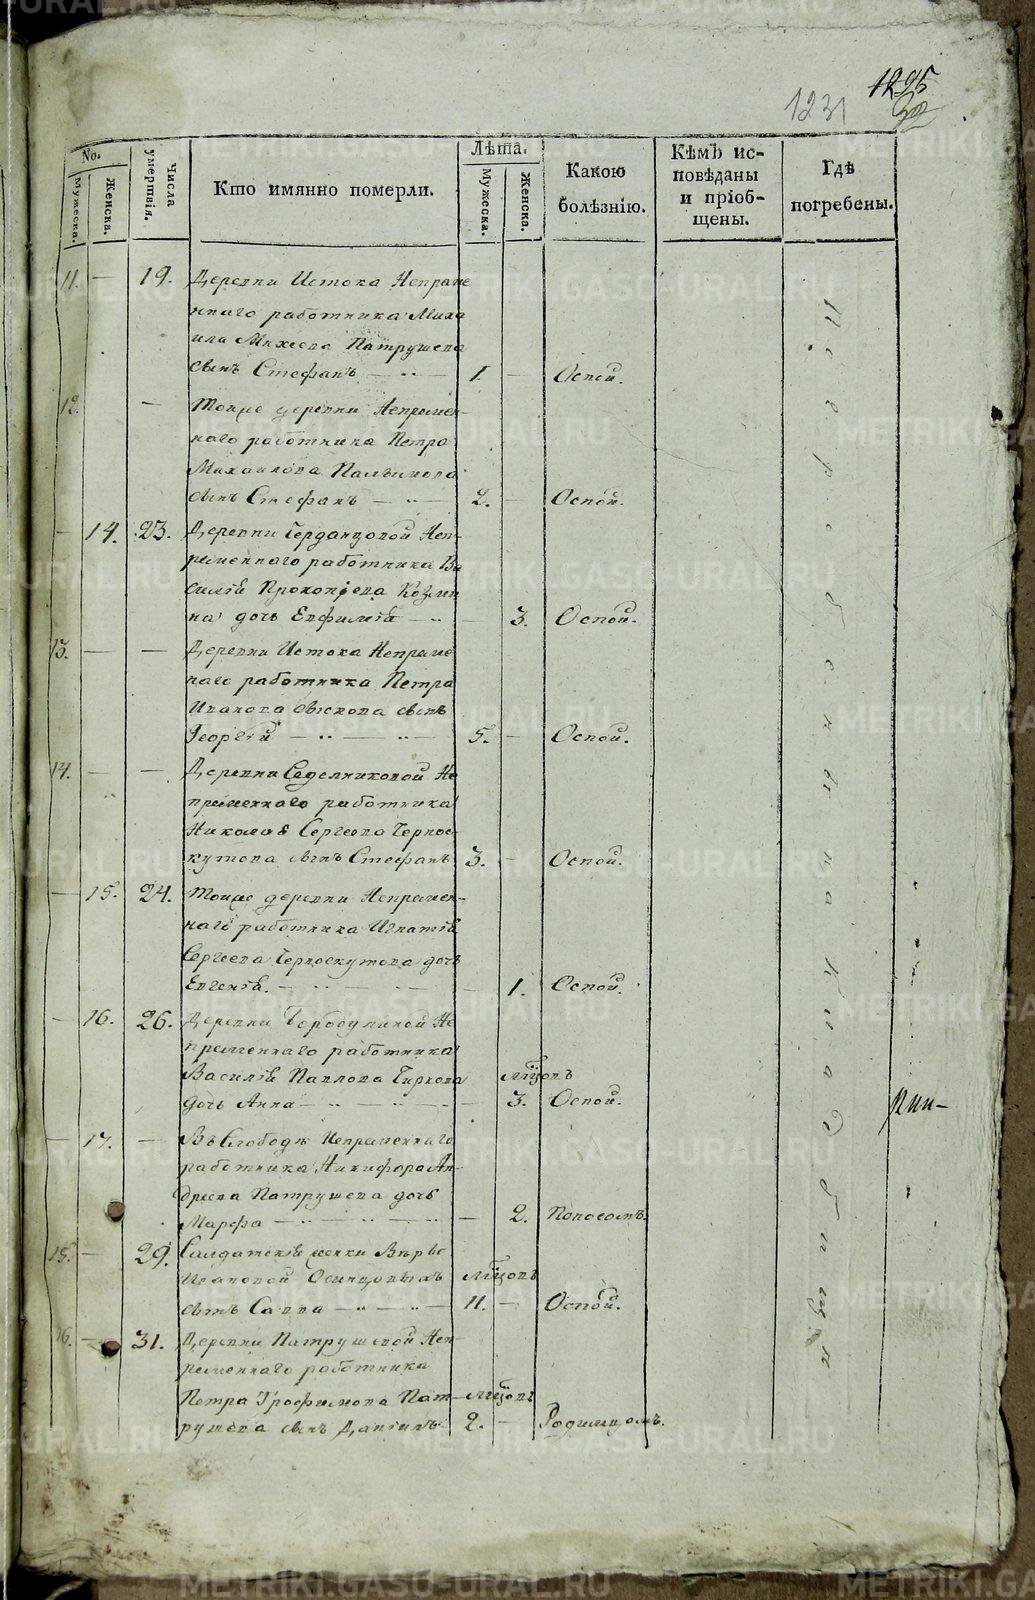 1295
1231
32
No.
Мужеска.
Женска.
Числа умертвія.
Кто имянно померли.
Лѣта.
Мужеска.
Женска.
Какою болѣзнію.
Кѣмъ исповѣданы и пріобщены.
Гдѣ погребены.
11. — 19. Деревни Истока Непреме
ннаго работника Миха
ила Михеева Патрушева
сынъ Стефанъ — 1. — Оспой.
12. — Тоиже деревни Непремен-
наго работника Петра
Михаилова
сынъ Стефанъ — 2. — Оспой.
— 14. 23. Деревни Черданцовой Неп-
ременнаго работника Ва
силія Прокопіева Козми
на дочь Евфимія — 3. Оспой.
13. — — Деревни Истока Непреме
ннаго работника Петра
Иванова сынъ
Георгій — 5. — Оспой.
14. — — Деревни Седелниковой Не
пременнаго работника
Николая Сергеева Чернос-
кутова сынъ Стефанъ 3. — Оспой.
— 15. 24. Тоиже деревни Непремен-
наго работника Игнатія
Сергеева Черноскутова дочь
Евгенія. — 1. Оспой.
— 16. 26. Деревни Не
пременнаго работника
Василія Павлова Чиркова мѣсцовъ
дочь Анна — 3. Оспой.
— 17. — Въ Слободѣ Непременнаго
работника Никифора Ан-
дреева Патрушева дочь
Марфа — 2. Поносомъ.
15. — 29. Салдатскія женки
Ивановой Осинцовыхъ мѣсцовъ
сынъ Савва — 11. — Оспой.
16. — 31. Деревни Патрушевой Неп-
ременнаго работника
Петра Трофимова Пат- мѣсцовъ
рушева сынъ Даніилъ 2. — Родимцомъ.
METRIKI.GASO-URAL.RU